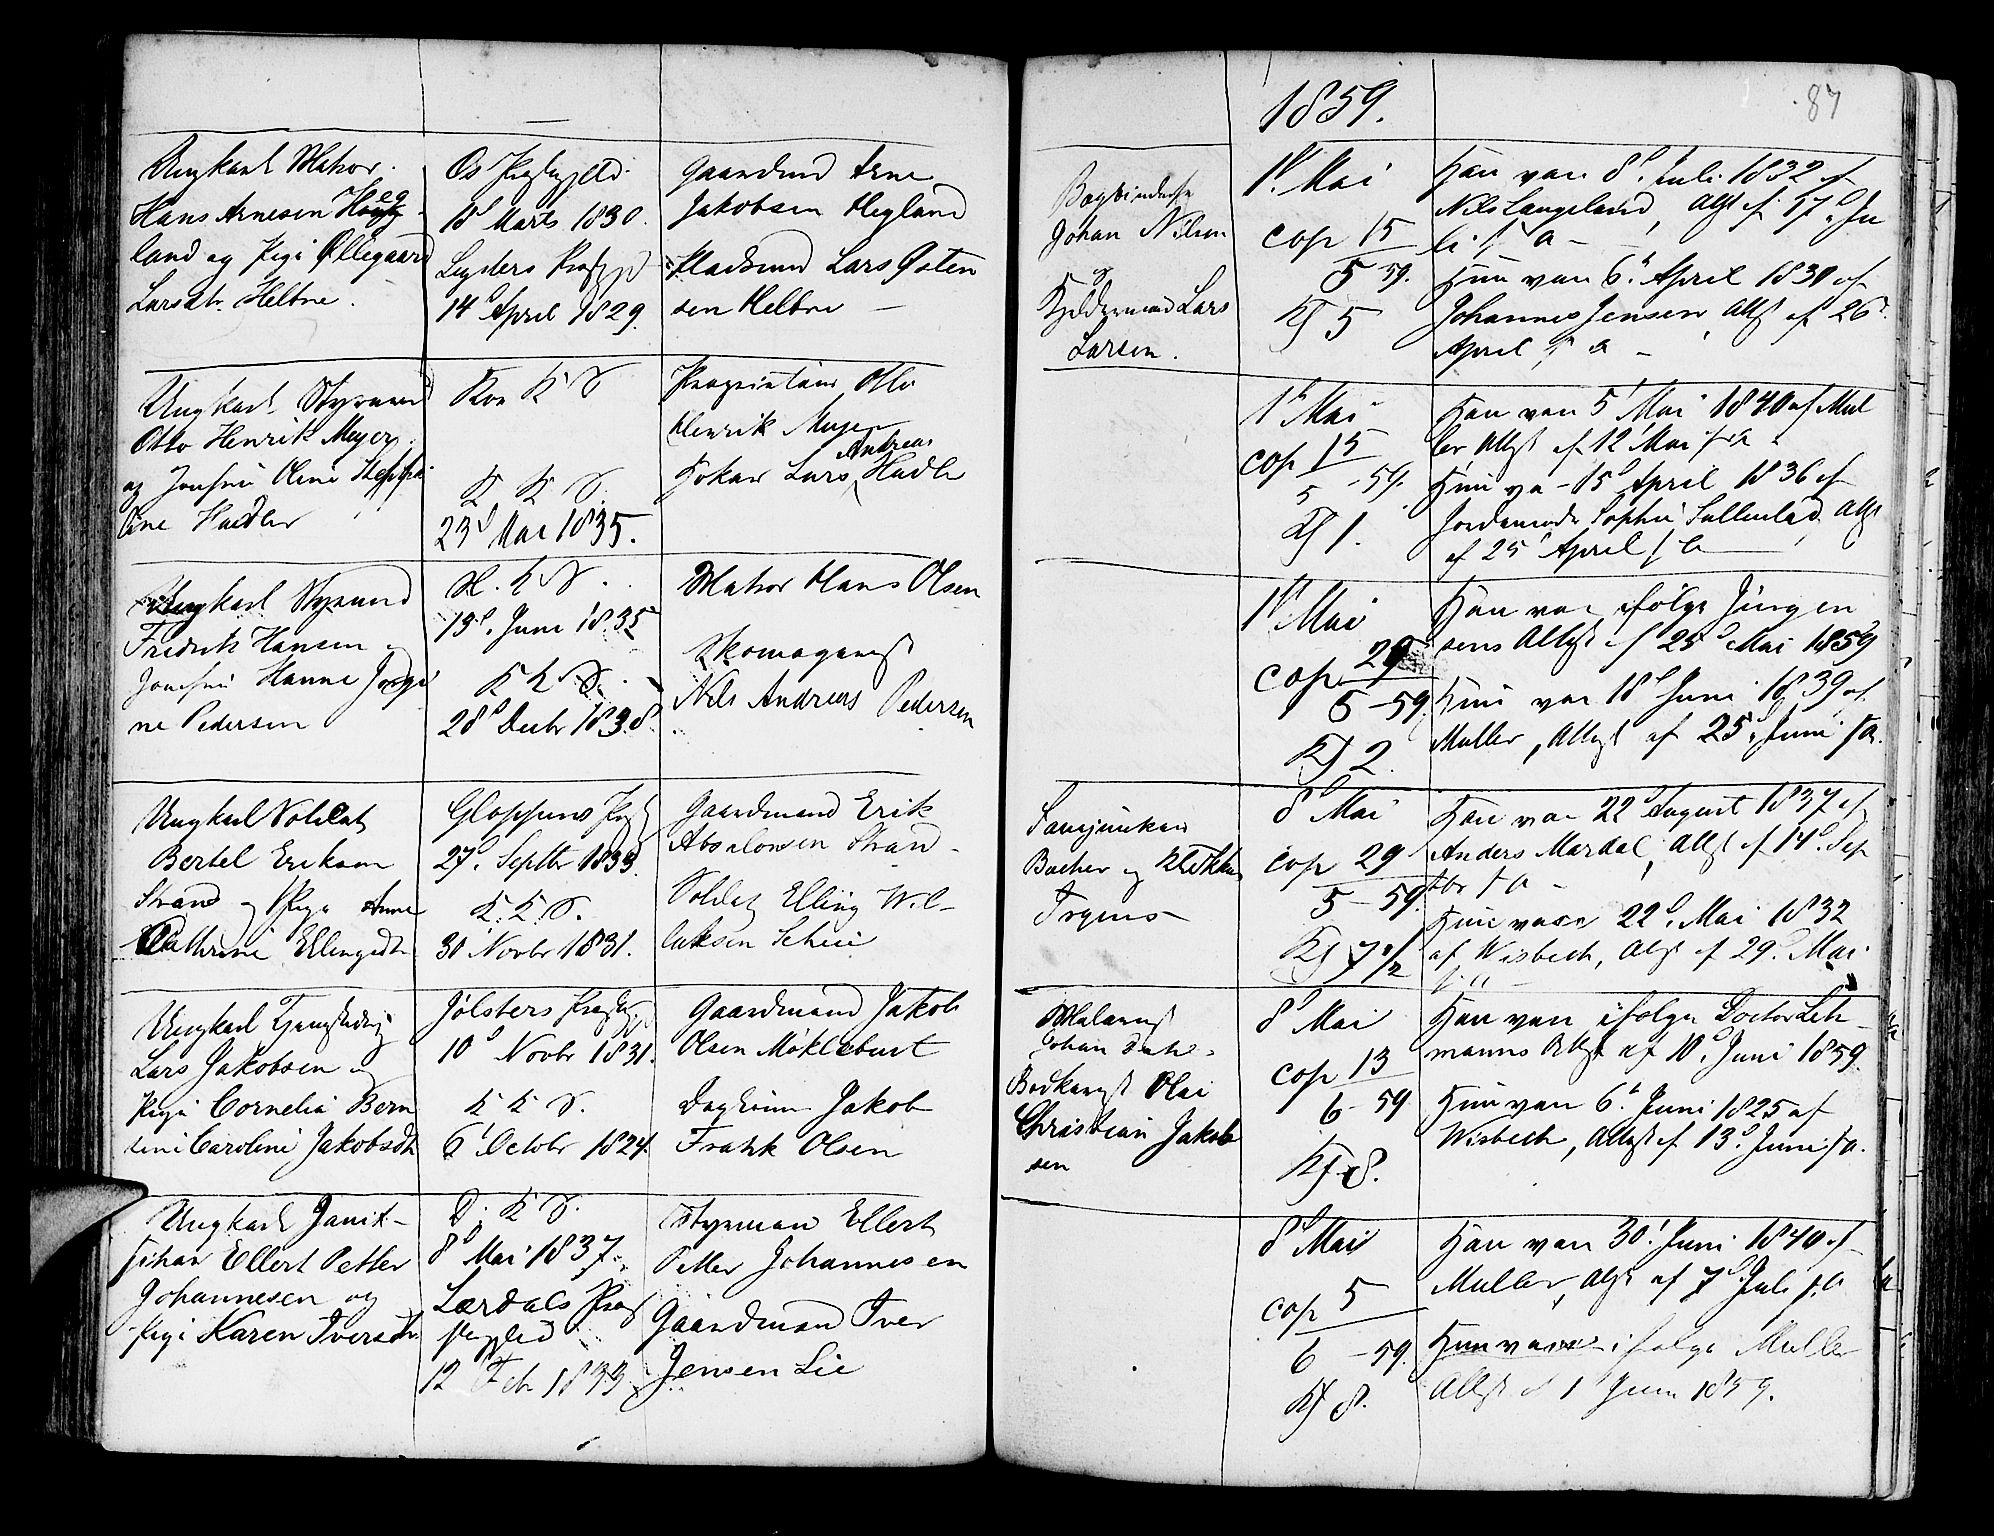 1859.
87
Ungkarl Matros
Hans Arnesen Hoeg
land og Pige Øllegaard
Larsdtr. Heltne.
Os Præstegjeld
18d Marts 1830.
Lysters Præstgjd
14d April 1829.
Gaardmd Arne
Jakobsen Hegland
Pladsmd Lars Østen
sen Heltne
Bogbindersv
Johan Nilsen
Kjeldermand Lars
Larsen.
1d Mai
cop 15
5 59.
Kj 5
Han var 8d Juli 1832 af
Nils Langeland, Attst af 17d Ju
li s a
Hun var 6d April 1830 af
Johannes Jensen, Attst af 26d
April s a
Ungkarl Styrmand
Otto Henrik Meyer
og Jomfru Oline
ine Hadler
Kors K S
K K S.
23d Mai 1835.
Proprietær Otto
Henrik Meyer
Andreas
Lars Hadler
1d Mai
cop 15
5 - 59.
Kj 1.
Han var 5d Mai 1840 af Mul
ler, Attst af 12 Mai s a
Hun va 15d April 1836 af
Jordemoder Sophie, Attst
af 25d April s a
Ungkarl Styrmd
Fredrik Hansen og
Jomfru Hanne Jorgi
ne Pedersen
N. K S.
13d Juni 1835
K K S.
28d Decbr 1838.
Matros Hans Olsen
Skomagermst
Nils Andreas Pedersen
1d Mai
cop 29
5 - 59.
Kj 2.
Han var ifølge Jürgen
sens Attst af 25d Mai 1859
Hun var 18d Juni 1839 af
Muller, Attst af 25d Juni s a.
Ungkarl Soldat
Bertel Eriksen
Strand og Pige Anne
Cathrine Ellingsdtr
Gloppens Pgj
27d Septbr 1833.
K. K. S.
30 Novbr 1831.
Gaardmand Erik
Absalonsen Strand
Soldat Elling Wil
laksen Scheie
Bøcher og Klokker
8d Mai
cop 29
5 - 59.
Kj 7 1/2
Han var 22d August 1837 af
Anders Mardal, Attst af 14d Sep
tbr s a
Hun vacc 22d Mai 1832
af Wisbech, Attst af 29d Mai
s a
Ungkarl
Lars Jakobsen og
Pige Cornelia Bern
tine Caroline Jakobsdtr
Jølsters Præstgj
10d Novbr 1831.
K K S.
6d Octobr 1824.
Gaardmand Jakob
Olsen Møklebust
Jakob
Frank Olsen
Malermst
Johan Dahl
Bødkermst Olai
Christian Jakob
sen
8d Mai
cop 13
6 - 59
Kj 8.
Han var ifølge Doctor Leh
manns Attst af 10d Juni 1859.
Hun var 6d Juni 1825 af
Wisbech, Attst af 13d Juni s a.
Ungkarl Janit
schar Ellert Petter
Johannesen og
Pige Karen Iversdtr
D. K S.
8d Mai 1837.
Lærdals Præs
tegjeld
12 Feb 1833.
Styrman Ellert
Petter Johannesen
Gaardmand Iver
Jensen Lie
8d Mai
cop 5
6 - 59.
Kj 8.
Han var 30d Juni 1840 af
Muller, Attst af 7d Juli s. a
Hun vacc ifølge Muller
Attst af 1d Juni 1859.